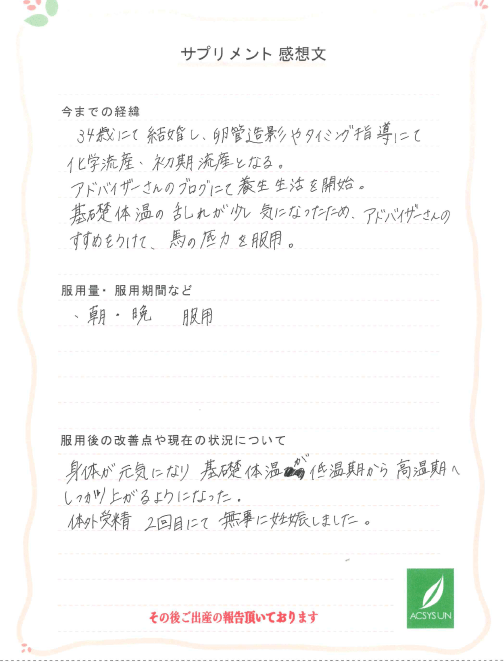 サプリメント 感想文
今までの経緯
34歳にて結婚し、卵管造影やタイミング指導にて
化学流産、初期流産となる。
アドバイザーさんのブログにて養生生活を開始。
基礎体温の乱れが少し気になったため、アドバイザーさんの
すすめをうけて、馬の底力を服用。
服用量・服用期間など
、朝・晩 服用
服用後の改善点や現在の状況について
身体が元気になり 基礎体温が低温期から高温期へ
しっかり上がるようになった。
体外受精 2回目にて 無事に妊娠しました。
その後ご出産の報告頂いております
ACSYSUN